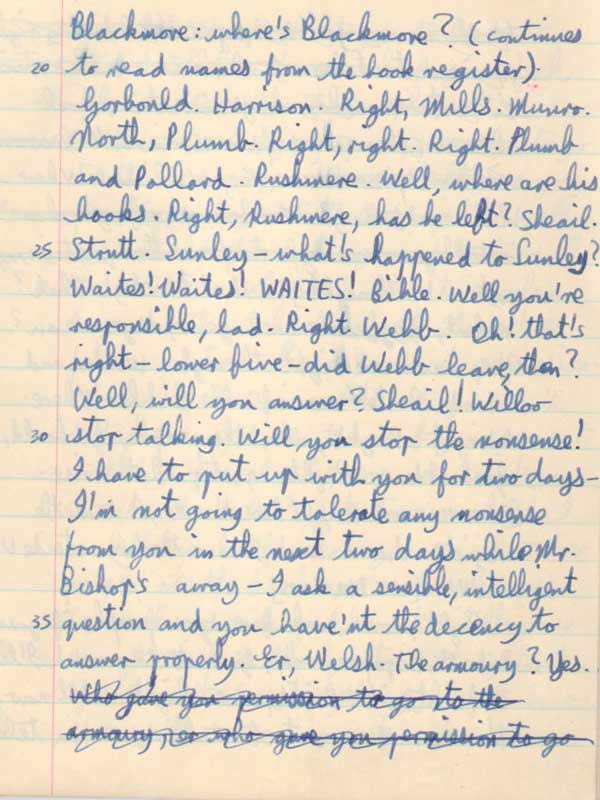 Blackmore: where's Blackmore? (continues
20 to read names from the book register).
Gorbould. Harrison. Right, Mills. Munro.
North, Plumb. Right, right. Right. Plumb
and Pollard. Rushmere. Well, where are his
books. Right, Rushmere, has he left? Sheail.
25 Strutt. Sunley – what's happened to Sunley?
Waites! Waites! WAITES! Bible. Well you're
responsible, lad. Right Webb. Oh! that's
right – lower five – did Webb leave, then?
Well, will you answer? Sheail! Willoo
30 stop talking. Will you stop the nonsense!
I have to put up with you for two days –
I'm not going to tolerate any nonsense
from you in the next two days while Mr.
Bishop's away – I ask a sensible, intelligent
35 question and you have'nt the decency to
answer properly. Er, Welsh. The armoury? Yes.
Who gave you permission to go to the
armoury, er who gave you permission to go